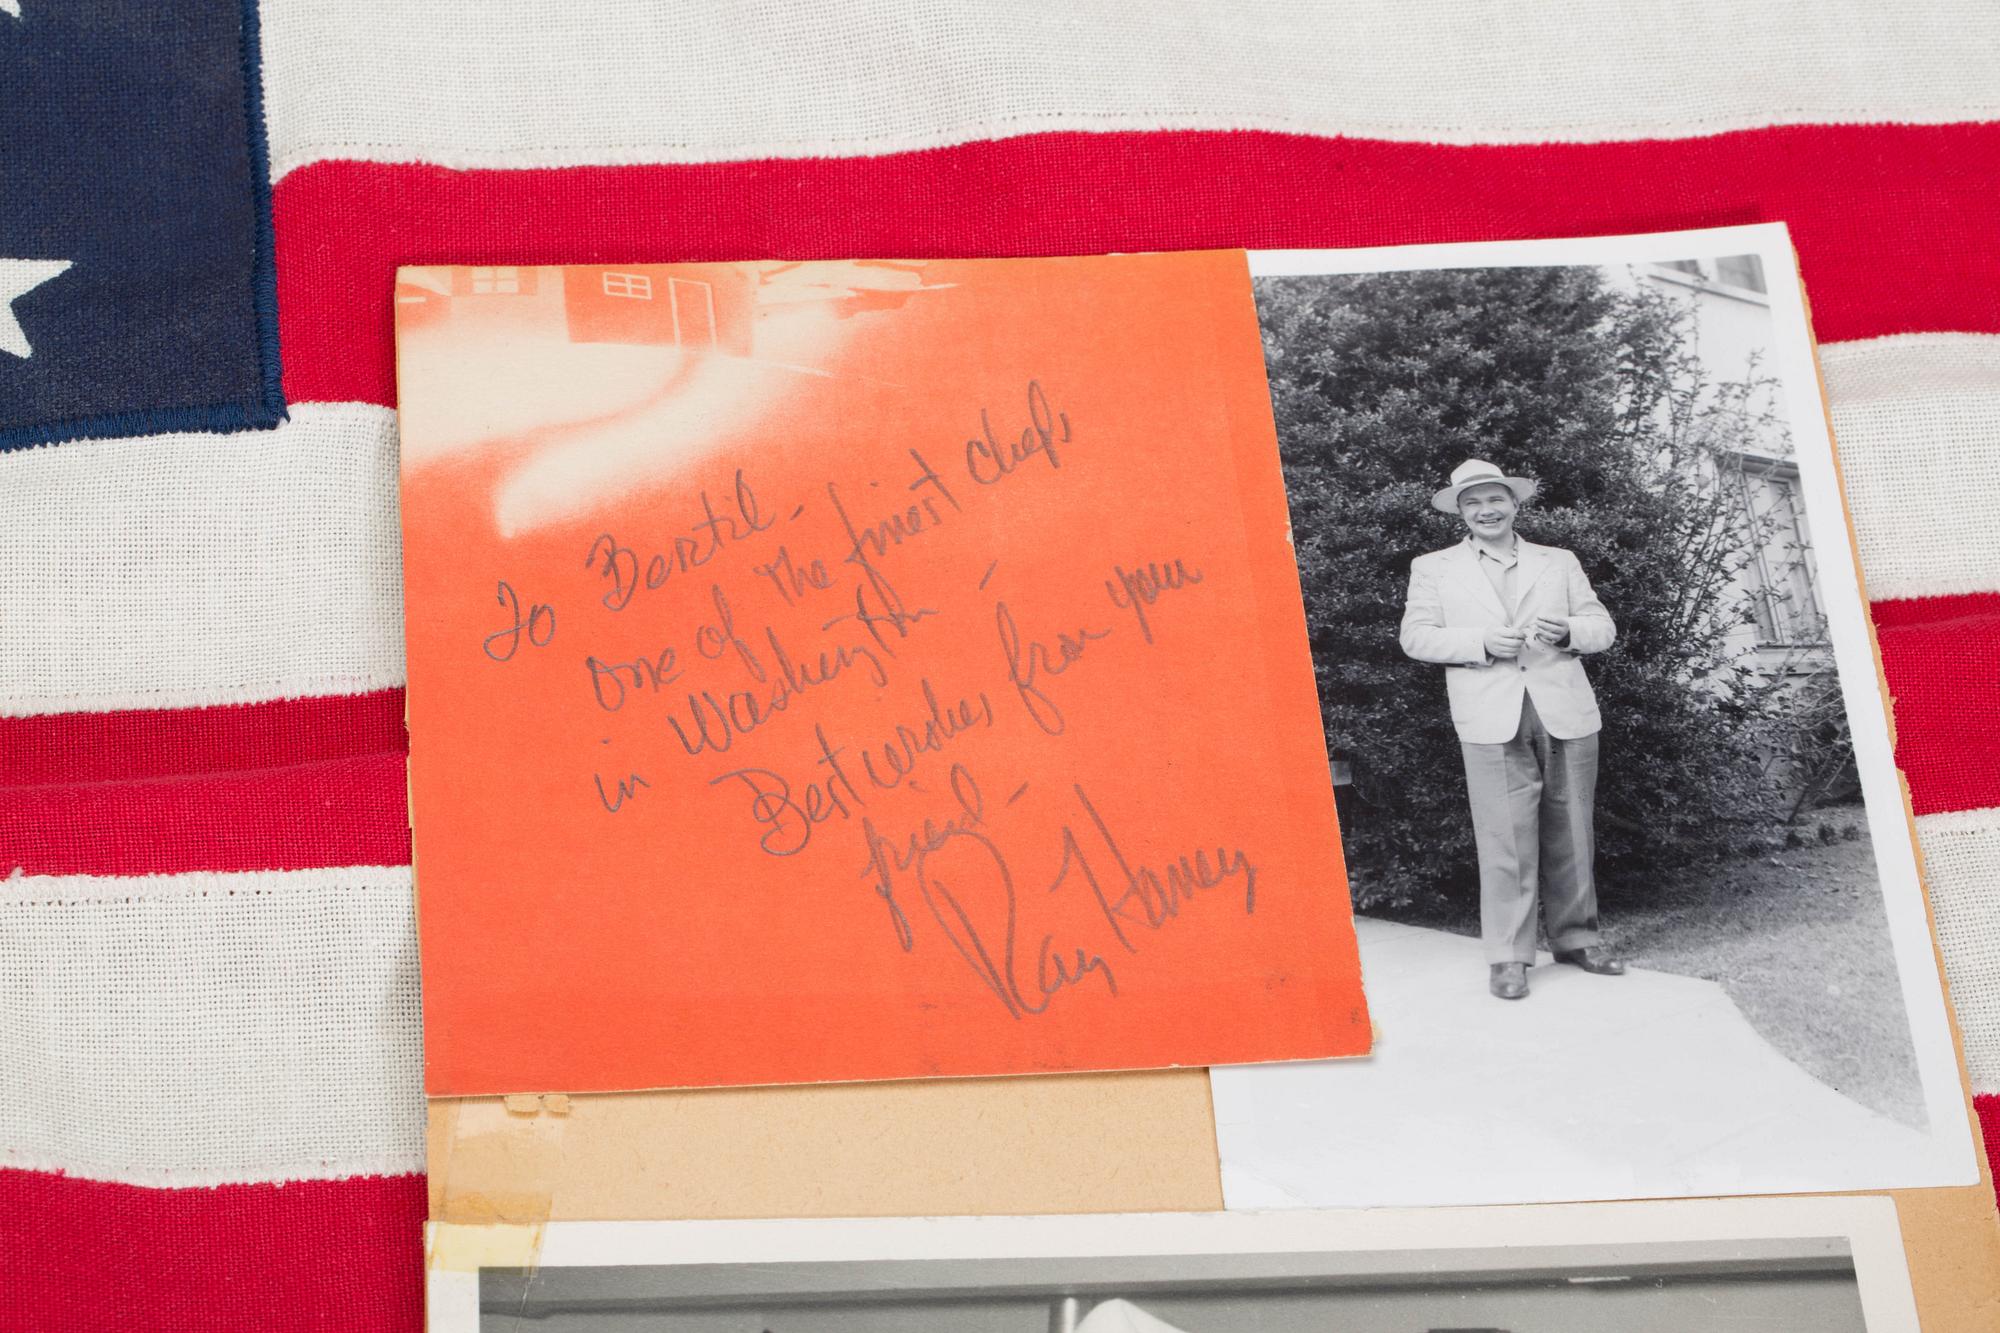 To Bertil -
one of the finest chefs
in Washington -
Best wishes from your
friend -
Ray Haney